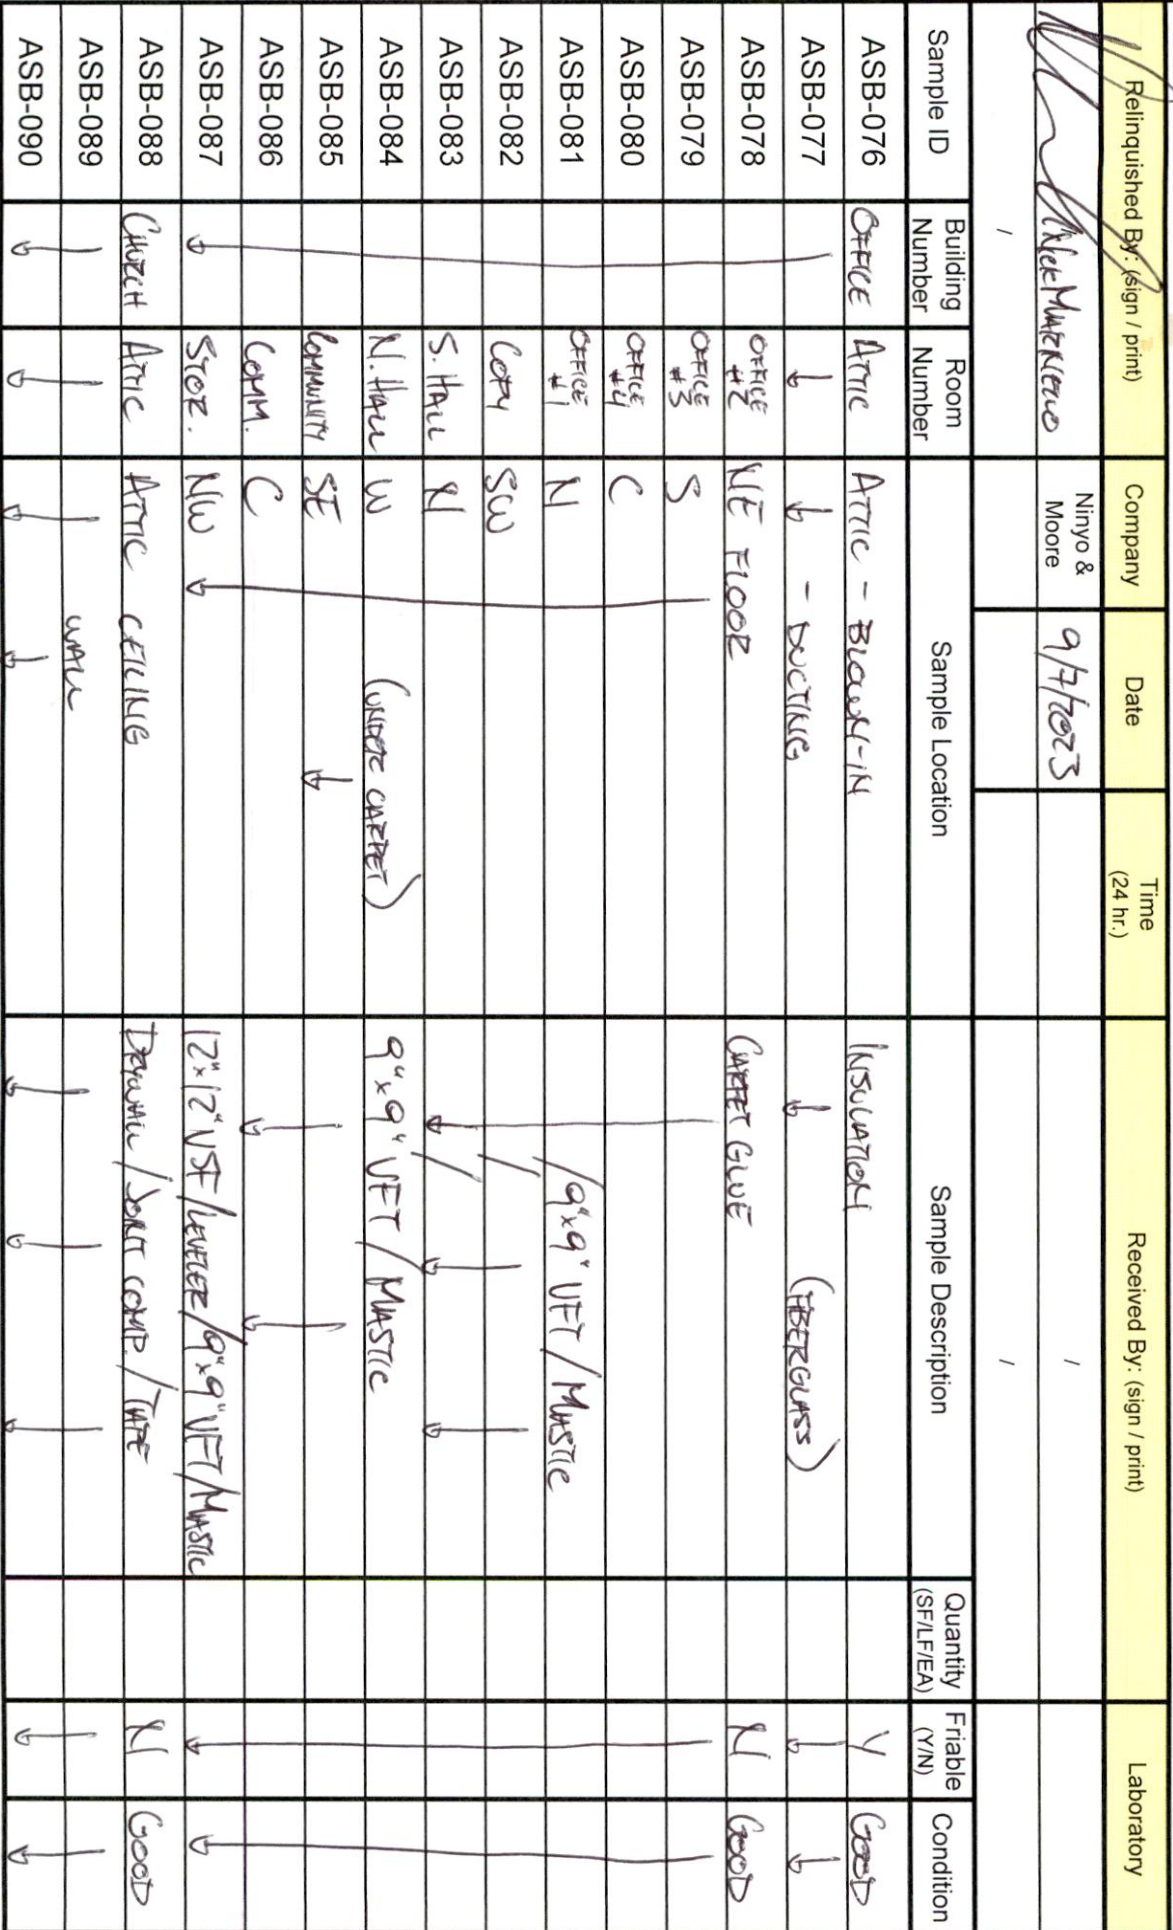 Relinquished By: (sign / print) Company Date Time (24 hr.) Received By: (sign / print) Laboratory
Nick Ninyo & Moore 9/7/2023 /
/ /
Sample ID Building Number Room Number Sample Location Sample Description Quantity (SF/LF/EA) Friable (Y/N) Condition
ASB-076 OFFICE ATTIC ATTIC - BLOWN-IN INSULATION Y GOOD
ASB-077 ↓ ↓ - DUCTING ↓ (FIBERGLASS) ↓ ↓
ASB-078 OFFICE #2 NE FLOOR CARPET GLUE N GOOD
ASB-079 OFFICE #3 S
ASB-080 OFFICE #4 C
ASB-081 OFFICE #1 N /9"x9" VFT/MASTIC
ASB-082 COPY SW /
ASB-083 S. HALL N ↓ / ↓ ↓
ASB-084 N. HALL W (UNDER CARPET) 9"x9" VFT/MASTIC
ASB-085 COMMUNITY SE ↓
ASB-086 COMM. C ↓ ↓
ASB-087 ↓ STOR. NW ↓ 12"x12" VSF/LEVELER/9"x9" VFT/MASTIC ↓ ↓
ASB-088 CHURCH ATTIC ATTIC CEILING DRYWALL/JOINT COMP./TAPE N GOOD
ASB-089 WALL
ASB-090 ↓ ↓ ↓ ↓ ↓ ↓ ↓ ↓ ↓